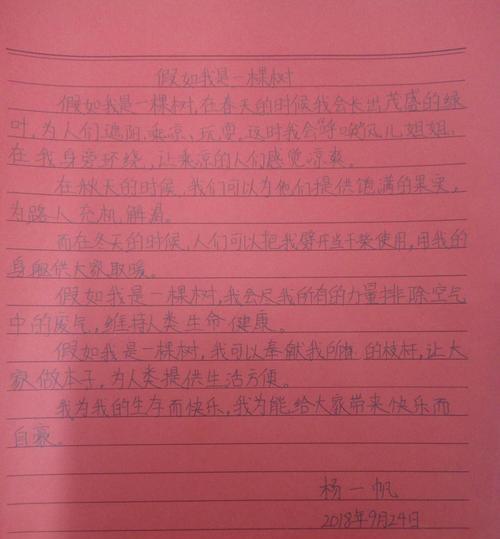 假如我是一棵树
假如我是一棵树,在春天的时候我会长出茂盛的绿
叶,为人们遮阳、乘凉、玩耍。这时我会呼唤风儿姐姐,
在我身旁环绕,让乘凉的人们感觉凉爽。
在秋天的时候,我们可以为他们提供饱满的果实,
为路人充机,解渴。
而在冬天的时候,人们可以把我劈开当干柴使用,用我的
身躯供大家取暖。
假如我是一棵树,我会尽我所有的力量排除空气
中的废气,维持人类生命健康。
假如我是一棵树,我可以奉献我所有的枝杆,让大
家做本子,为人类提供生活方便。
我为我的生存而快乐,我为能给大家带来快乐而
自豪。
杨一帆
2018年9月24日